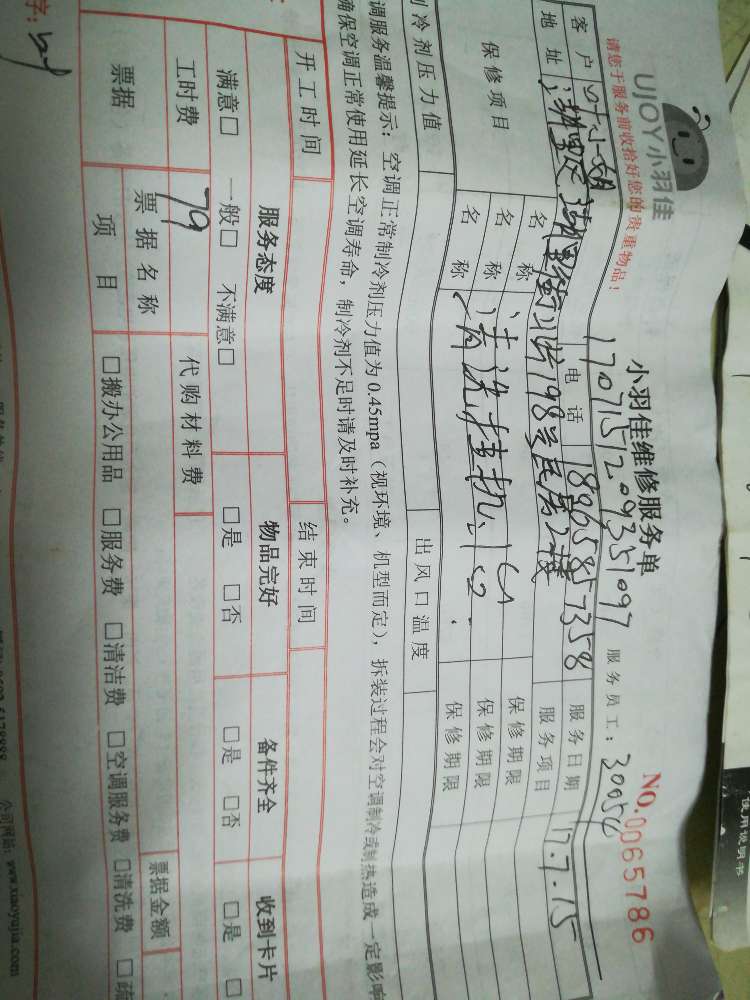 UJOY小羽佳
请您于服务前收拾好您的贵重物品!
小羽佳维修服务单
NO.0065786
170715209351097 服务员工: 30054
客户 叶小姐 电话 18965857358 服务日期 17.7.15
地址 湖里区 198号 2楼 服务项目
保修项目 名称 清洗挂机 保修期限
名称 保修期限
名称 保修期限
制冷剂压力值 出风口温度
调服务温馨提示: 空调正常制冷剂压力值为0.45mpa(视环境、机型而定), 拆装过程会对空调制冷或制热造成一定影响
确保空调正常使用延长空调寿命, 制冷剂不足时请及时补充。
开工时间 结束时间
服务态度 物品完好 备件齐全 收到卡片
满意□ 一般□ 不满意□ □是 □否 □是 □否 □是 □
工时费 79 代购材料费
票据 票据名称 票据金额
项目 □搬办公用品 □服务费 □清洁费 □空调服务费 □清洗费 □疏
字:
公司网站: www.xiaoyujia.com
使用说明书